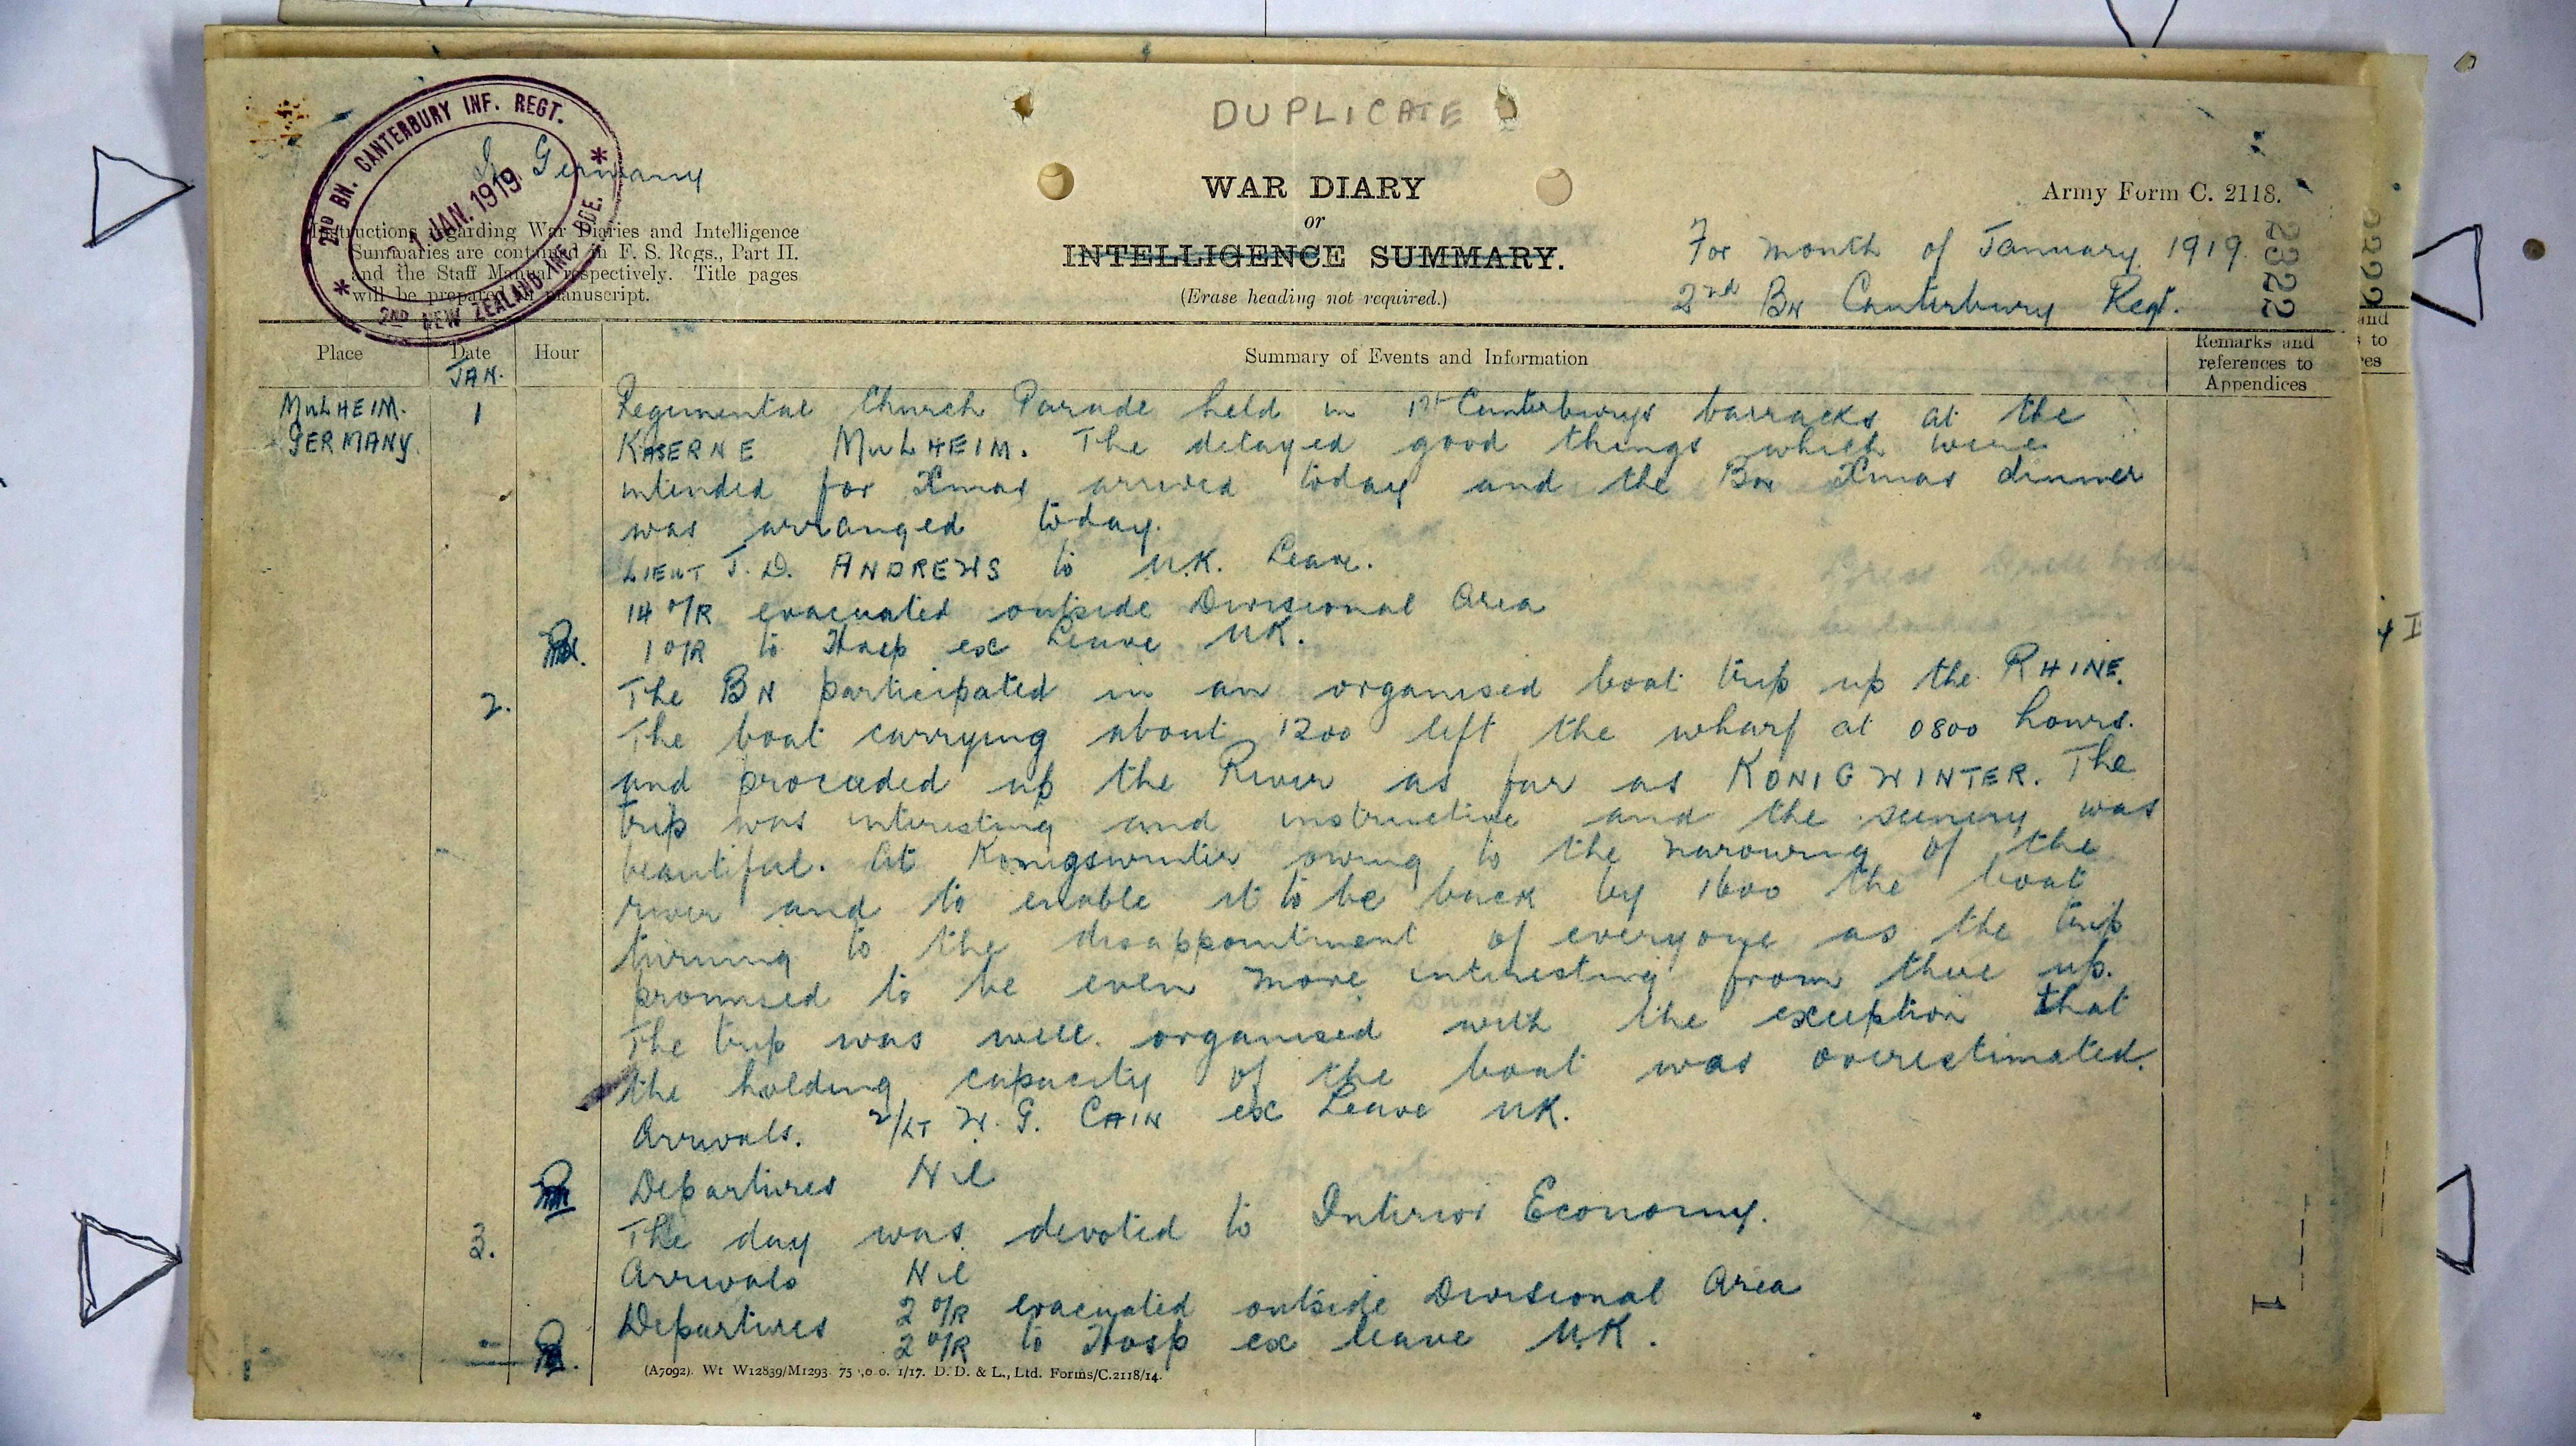 DUPLICATE
2ND BN. CANTERBURY INF. REGT.
1 JAN. 1919
2ND NEW ZEALAND INF. BDE.
Germany
WAR DIARY
or
INTELLIGENCE SUMMARY.
(Erase heading not required.)
Instructions regarding War Diaries and Intelligence
Summaries are contained in F. S. Regs., Part II.
and the Staff Manual respectively. Title pages
will be prepared in manuscript.
Army Form C. 2118.
For month of January 1919.
2nd Bn Canterbury Regt.
2322
Place Date Hour Summary of Events and Information Remarks and references to Appendices
JAN.
MULHEIM. 1 Regimental Church Parade held in 1st Canterburys barracks at the
GERMANY. KASERNE MULHEIM. The delayed good things which were
intended for Xmas arrived today and the Bn Xmas dinner
was arranged today.
LIEUT J. D. ANDREWS to U.K. Leave.
14 O/R evacuated outside Divisional Area
1 O/R to Hosp ex Leave UK.
2. The BN participated in an organised boat trip up the RHINE.
The boat carrying about 1200 left the wharf at 0800 hours.
and proceeded up the River as far as KONIGWINTER. The
trip was interesting and instructive and the scenery was
beautiful. At Konigswinter owing to the narowing of the
river and to enable it to be back by 1600 the boat
turning to the disappointment of everyone as the trip
promised to be even more interesting from there up.
The trip was well organised with the exception that
the holding capacity of the boat was overestimated.
Arrivals. 2/LT W. G. CAIN ex Leave UK.
Departures Nil
3. The day was devoted to Interior Economy.
Arrivals Nil
Departures 2 O/R evacuated outside Divisional Area
2 O/R to Hosp ex leave UK.
(A7092). Wt W12839/M1293 75 ,0 0. 1/17. D. D. & L., Ltd. Forms/C.2118/14.
1